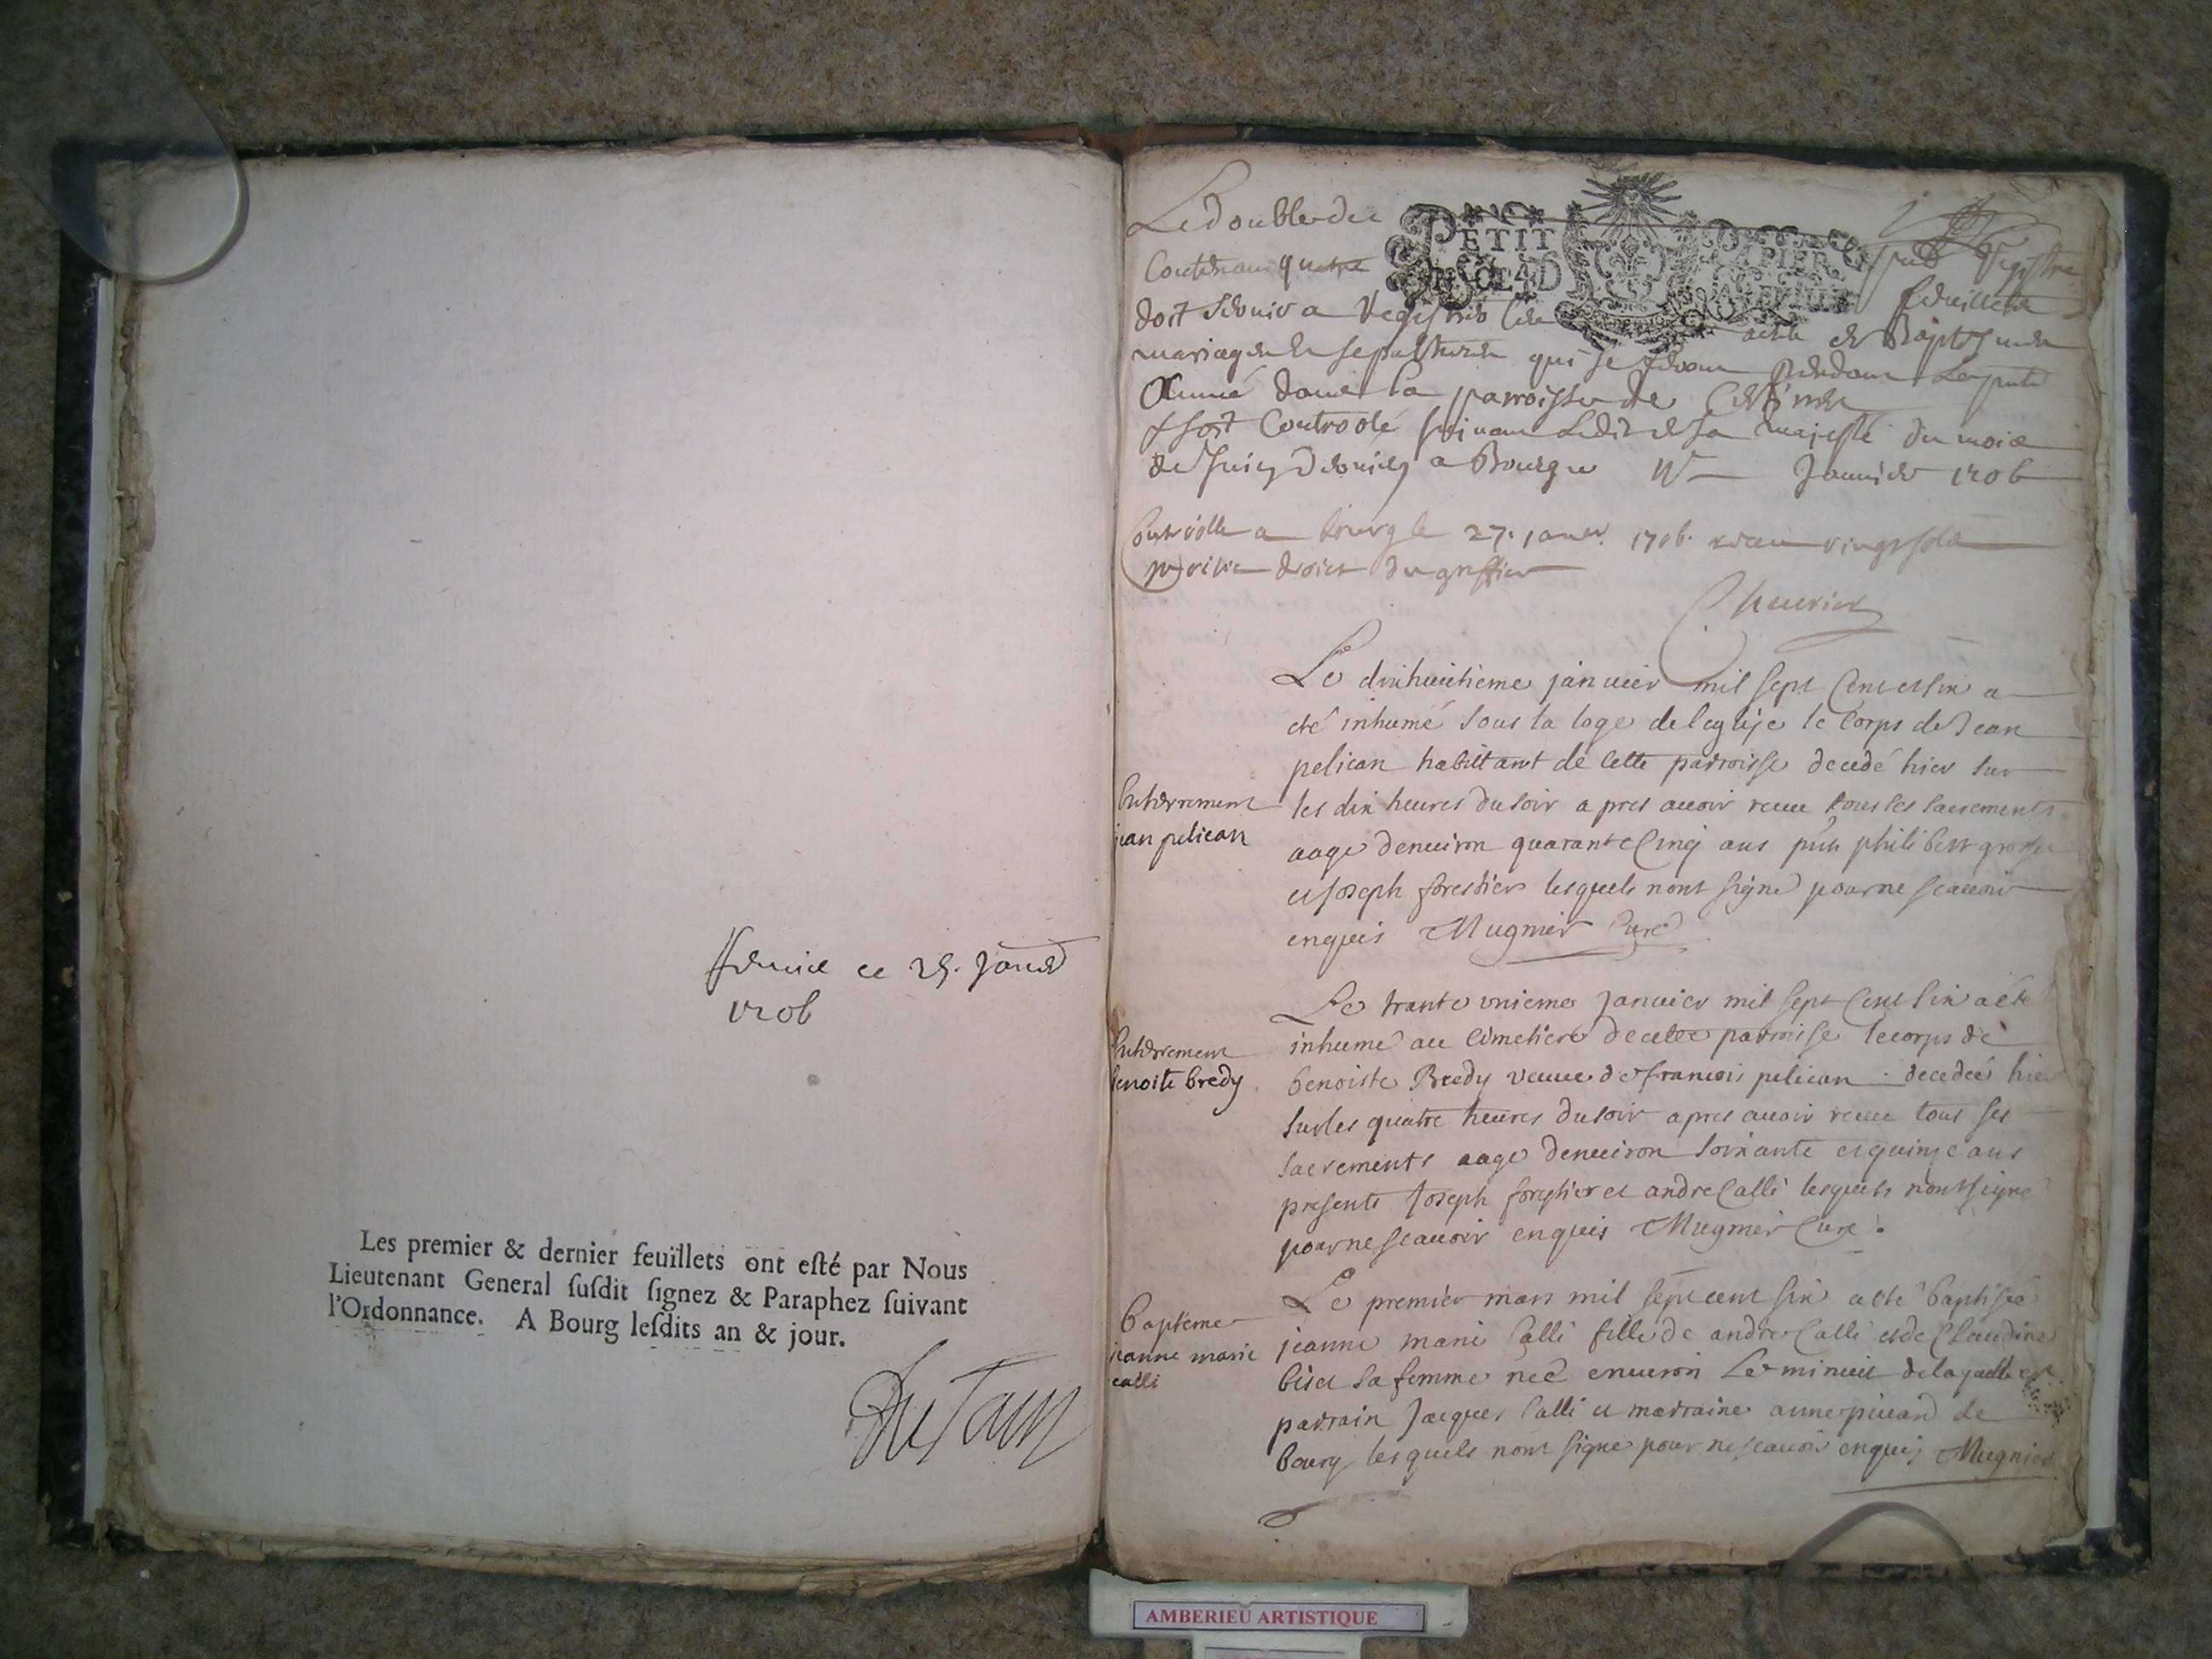 ce 25. Janv
1706
Les premier & dernier feuillets ont eſté par Nous
Lieutenant General ſuſdit ſignez & Paraphez ſuivant
l'Ordonnance. A Bourg leſdits an & jour.
Le double du
PETIT PAPIER
Contenant quatre feuillets
doit servir a Registre les actes de Baptesmes
mariages & sepultures qui se feront pendant la presente
Année dans la parroisse de
& soit Controolé suivant Ledit de sa majesté du mois
de Juin dernier a Bourg ce Janvier 1706
Controllé a bourg le 27. janer. 1706. receu vingt sols
droict du greffier
Le dixhuitieme januier mil sept Cent et six a
eté inhumé sous la loge de leglise le Corps de Jean
pelican habittant de Cette parroisse decedé hier sur
les dix heures du soir a pres auoir receu tous les sacrements
aagé denuiron quarante Cinq ans pnts philibert
et Joseph forestier lesquels nont signé pour ne scauoir
enquis Mugnier Curé
Enterrement
jean pelican
Le trante vnieme Januier mil sept Cent six a eté
inhumé au Cimetiere de cette parroisse le corps de
benoiste Bredy veuue de francois pelican decedée hier
sur les quatre heures du soir apres auoir receu tous ses
sacrements aagé denuiron soixante et quinze ans
presents Joseph forestier et andre Calli lesquels nont signé
pour ne scauoir enquis Mugnier Curé.
Enterrement
benoite bredy
Le premier mars mil sept cent six a eté baptisée
jeanne marie Calli fille de andre Calli et de Claudine
biset sa femme née enuiron Le minuit de laquelle est
parrain Jacques Calli et marraine anne de
bourg lesquels nont signé pour ne scauoir enquis Mugnier
Bapteme
jeanne marie
calli
AMBERIEU ARTISTIQUE